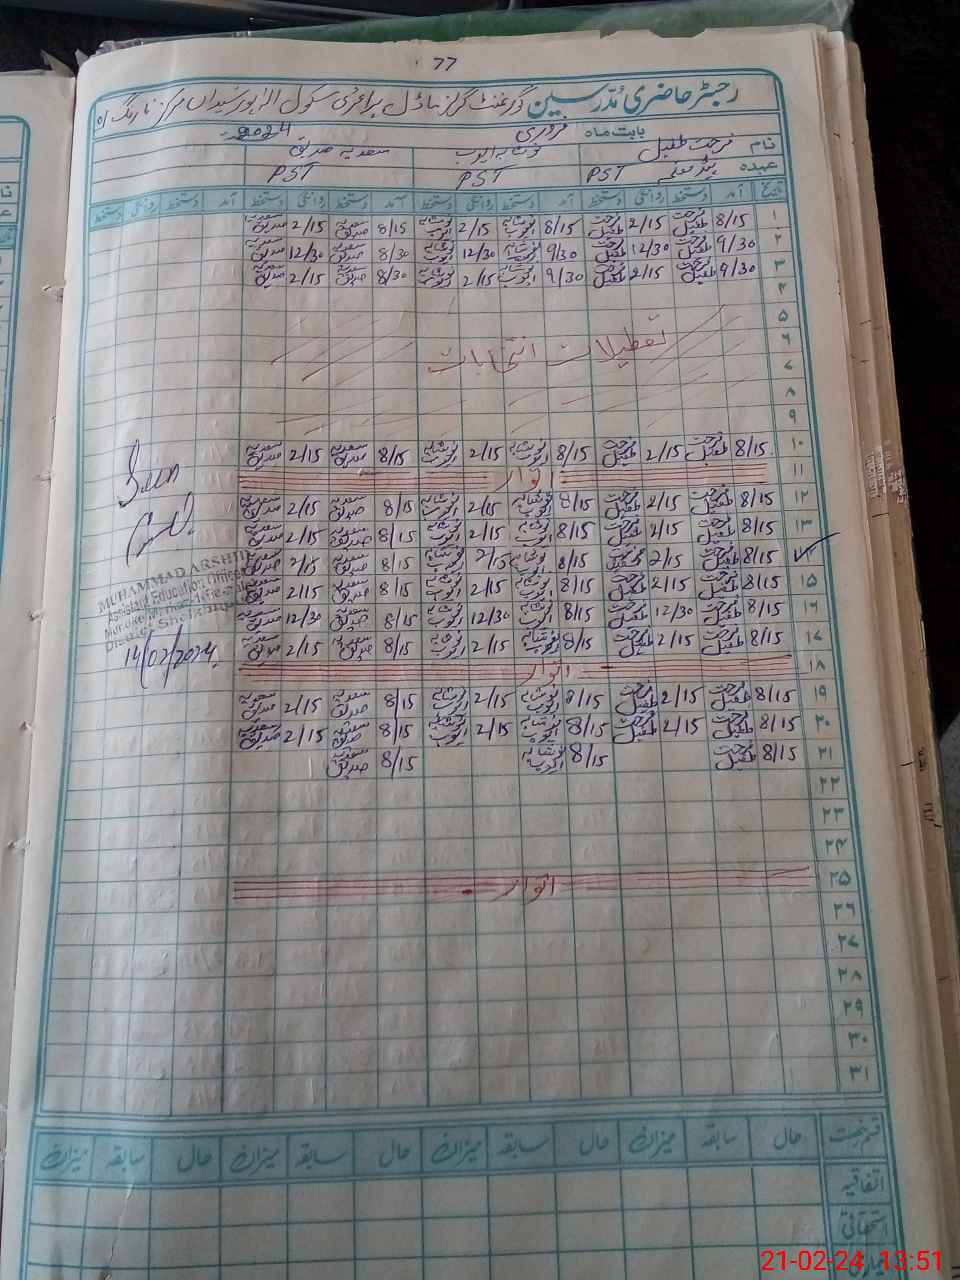 77
رجسٹر حاضری مدرسین گورنمنٹ گرلز ماڈل پرائمری سکول مرکز نارنگ
بابت ماہ فروری 2024
نام فرحت طفیل نوشابہ ایوب سعدیہ صدیق
عہدہ PST PST PST
تاریخ آمد دستخط روانگی دستخط آمد دستخط روانگی دستخط آمد دستخط روانگی دستخط آمد دستخط روانگی دستخط
۱ 8/15 فرحت طفیل 2/15 فرحت طفیل 8/15 نوشابہ ایوب 2/15 نوشابہ ایوب 8/15 سعدیہ صدیق 2/15 سعدیہ صدیق
۲ 9/30 فرحت طفیل 12/30 فرحت طفیل 9/30 نوشابہ ایوب 12/30 نوشابہ ایوب 8/30 سعدیہ صدیق 12/30 سعدیہ صدیق
۳ 9/30 فرحت طفیل 2/15 فرحت طفیل 9/30 نوشابہ ایوب 2/15 نوشابہ ایوب 8/30 سعدیہ صدیق 2/15 سعدیہ صدیق
۴
۵
۶ تعطیلات انتخابات
۷
۸
۹
۱۰ 8/15 فرحت طفیل 2/15 فرحت طفیل 8/15 نوشابہ ایوب 2/15 نوشابہ ایوب 8/15 سعدیہ صدیق 2/15 سعدیہ صدیق
Seen
۱۱ اتوار
۱۲ 8/15 فرحت طفیل 2/15 فرحت طفیل 8/15 نوشابہ ایوب 2/15 نوشابہ ایوب 8/15 سعدیہ صدیق 2/15 سعدیہ صدیق
۱۳ 8/15 فرحت طفیل 2/15 فرحت طفیل 8/15 نوشابہ ایوب 2/15 نوشابہ ایوب 8/15 سعدیہ صدیق 2/15 سعدیہ صدیق
۱۴ 8/15 فرحت طفیل 2/15 فرحت طفیل 8/15 نوشابہ ایوب 2/15 نوشابہ ایوب 8/15 سعدیہ صدیق 2/15 سعدیہ صدیق
۱۵ 8/15 فرحت طفیل 2/15 فرحت طفیل 8/15 نوشابہ ایوب 2/15 نوشابہ ایوب 8/15 سعدیہ صدیق 2/15 سعدیہ صدیق
۱۶ 8/15 فرحت طفیل 12/30 فرحت طفیل 8/15 نوشابہ ایوب 12/30 نوشابہ ایوب 8/15 سعدیہ صدیق 12/30 سعدیہ صدیق
۱۷ 8/15 فرحت طفیل 2/15 فرحت طفیل 8/15 نوشابہ ایوب 2/15 نوشابہ ایوب 8/15 سعدیہ صدیق 2/15 سعدیہ صدیق
MUHAMMAD ARSHID
Assistant Education Officer
14/02/2024
۱۸ اتوار
۱۹ 8/15 فرحت طفیل 2/15 فرحت طفیل 8/15 نوشابہ ایوب 2/15 نوشابہ ایوب 8/15 سعدیہ صدیق 2/15 سعدیہ صدیق
۲۰ 8/15 فرحت طفیل 2/15 فرحت طفیل 8/15 نوشابہ ایوب 2/15 نوشابہ ایوب 8/15 سعدیہ صدیق 2/15 سعدیہ صدیق
۲۱ 8/15 فرحت طفیل 8/15 نوشابہ ایوب 8/15 سعدیہ صدیق
۲۲
۲۳
۲۴
۲۵ اتوار
۲۶
۲۷
۲۸
۲۹
۳۰
۳۱
قسم رخصت حال سابقہ میزان حال سابقہ میزان حال سابقہ میزان حال سابقہ میزان
اتفاقیہ
استحقاقی
21-02-24 13:51